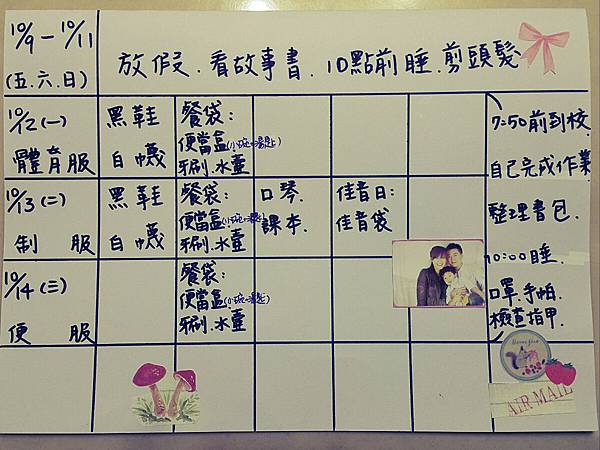 10/9-10/11
(五.六.日)
放假.看故事書.10點前睡.剪頭髮
10/12(一)
體育服
黑鞋
白襪
餐袋:
便當盒(小碗+湯匙)
牙刷.水壺
10/13(二)
制服
黑鞋
白襪
餐袋:
便當盒(小碗+湯匙)
牙刷.水壺
口琴.
課本.
佳音日:
佳音袋
10/14(三)
便服
餐袋:
便當盒(小碗+湯匙)
牙刷.水壺
7:50前到校
自己完成作業
整理書包.
10:00睡.
口罩.手帕.
檢查指甲.
AIR MAIL